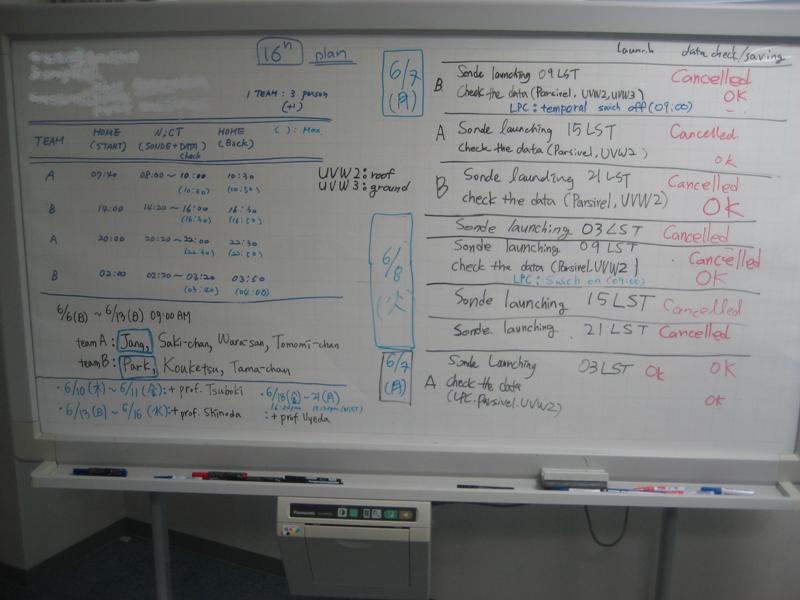 16th plan
1 TEAM : 3 person
(+1)
TEAM HOME (START) NiCT (SONDE+DATA) check HOME (Back) ( ) : Max.
A 07:40 08:00 ~ 10:00 10:30
(10:30) (10:50)
B 14:00 14:20 ~ 16:00 16:30
(16:30) (16:50)
A 20:00 20:20 ~ 22:00 22:30
(22:30) (22:50)
B 02:00 02:20 ~ 03:20 03:50
(03:40) (04:00)
UVW2 : roof
UVW3 : ground
6/6(日) ~ 6/13(日) 09:00 AM
team A : Jang, Saki-chan, Wara-san, Tomomi-chan
team B : Park, Kouketsu, Tama-chan
・6/10(木) ~ 6/11(金) : + prof. Tsuboki
・6/13(日) ~ 6/16(水) : + prof. Shinoda
・6/18(金) ~ 21(月)
: + prof Uyeda
launch data check/saving
6/7
(月)
B Sonde launching 09 LST Cancelled
Check the data (Parsivel, UVW2, UVW3) OK
LPC : temporal swich off (09:00)
A Sonde launching 15 LST Cancelled
check the data (Parsivel, UVW2) ok
B Sonde launching 21 LST Cancelled
check the data (Parsivel, UVW2) OK
6/8
(火)
Sonde launching 03 LST Cancelled
Sonde launching 09 LST Cancelled
check the data (Parsivel, UVW2) OK
LPC : Swich on (09:00)
Sonde launching 15 LST Cancelled
Sonde launching 21 LST Cancelled
6/7
(月)
A Sonde Launching 03 LST Ok OK
check the data
(LPC. Parsivel. UVW2) OK
Panasonic